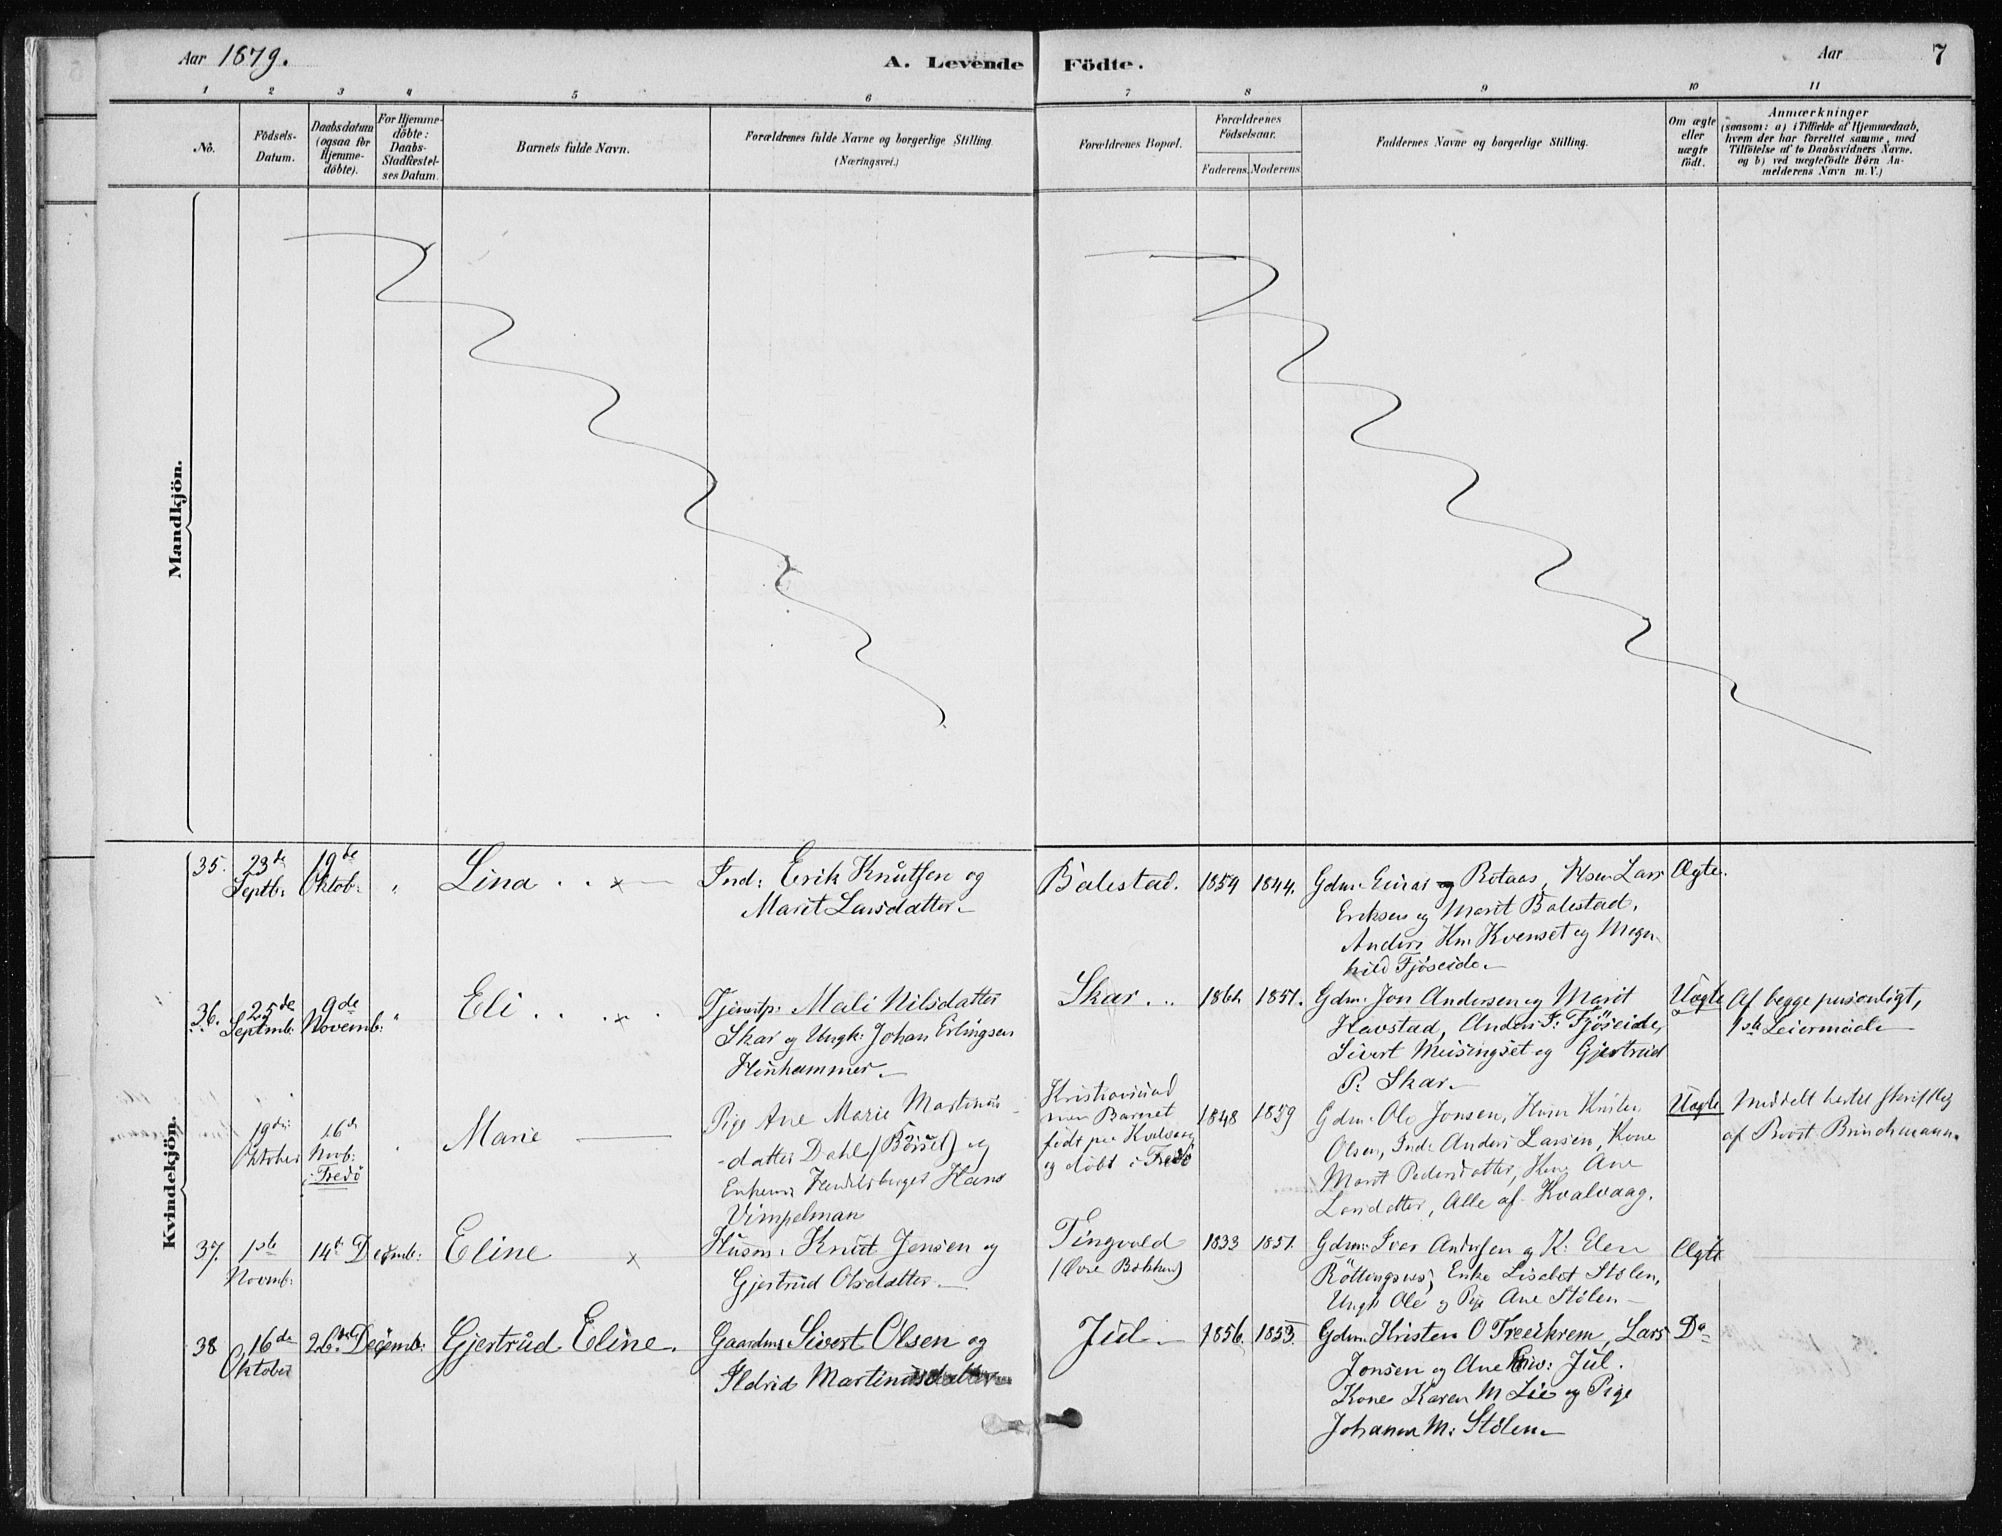 Aar 1879.
A. Levende Födte.
Aar
7
1 2 3 4 5 6 7 8 9 10 11
No.
Födsels-
Datum.
Daabsdatum
(ogsaa for
Hjemme-
döbte).
For Hjemme-
döbte:
Daabs-
Stadfæstel-
ses Datum.
Barnets fulde Navn.
Forældrenes fulde Navne og borgerlige Stilling
(Næringsvei.)
Forældrenes Bopæl.
Forældrenes
Födselsaar.
Faderens. Moderens.
Faddernes Navne og borgerlige Stilling.
Om ægte
eller
uægte
födt.
Anmærkninger
(saasom: a) i Tilfælde af Hjemmedaab,
hvem der har forrettet samme, med
Tilföielse af to Daabsvidners Navne.
og b) ved uægtefödte Börn An-
melderens Navn m. V.)
Mandkjön.
Kvindekjön.
35.
23de
Septb:
19de
Oktob:
"
Lina
Ind: Erik Knutsen og
Marit Larsdatter
Balestad.
1859
1844.
Gdm: Einar Rotaas, Lars
Eriksen og Marit Balestad,
Anders Kvenset og Magn-
hild Fjöseide
Ægte.
36.
25de
Septmb:
9de
Novemb:
"
Eli
Tjenestp: Mali Nilsdatter
Skar og Ungk: Johan Erlingsen
Henhammer
Skar
1851.
Gdm: Jon Andersen og Marit
Havstad, Anders F: Fjöseide,
Sivert Meisingset og Gjertrud
P: Skar
Uægte
Af begge personligt,
1ste Leiermaal
19de
Oktober
16de
Novb:
i Fredö
Marie
Pige Ane Marie Martinus-
datter Dahl (Börset) og
Enkem: Hans
Vimpelman
Kristiansund
men Barnet
födt paa
og döbt i Fredö
1848
1859
Gdm: Ole Jonsen,
Olsen, Ind: Anders Larsen, Kone
Marit Pedersdatter, Ane
Alle af Kvalvaag.
Uægte
Meddelt skriftlig
af Provst Brinchmann.
37.
1ste
Novmb:
14de Decemb:
Eline
Husm: Knut Jensen og
Gjertrud Olsdatter
Tingvold
1833
1851.
Gdm: Iver Andersen og K: Elen
Enke Lisebet Stölen,
Ungk Ole og Pige Ane Stölen
Ægte
38
16de
Oktober
26de Decemb:
Gjertrud Eline.
Gaardm: Sivert Olsen og
Ildrid Martinusdatter
Jul
1856.
1853.
Gdm: Kristen O Treekrem, Lars
Jonsen og Ane Jul.
Kone Karen M Lie og Pige
Johanna M: Stölen
Do